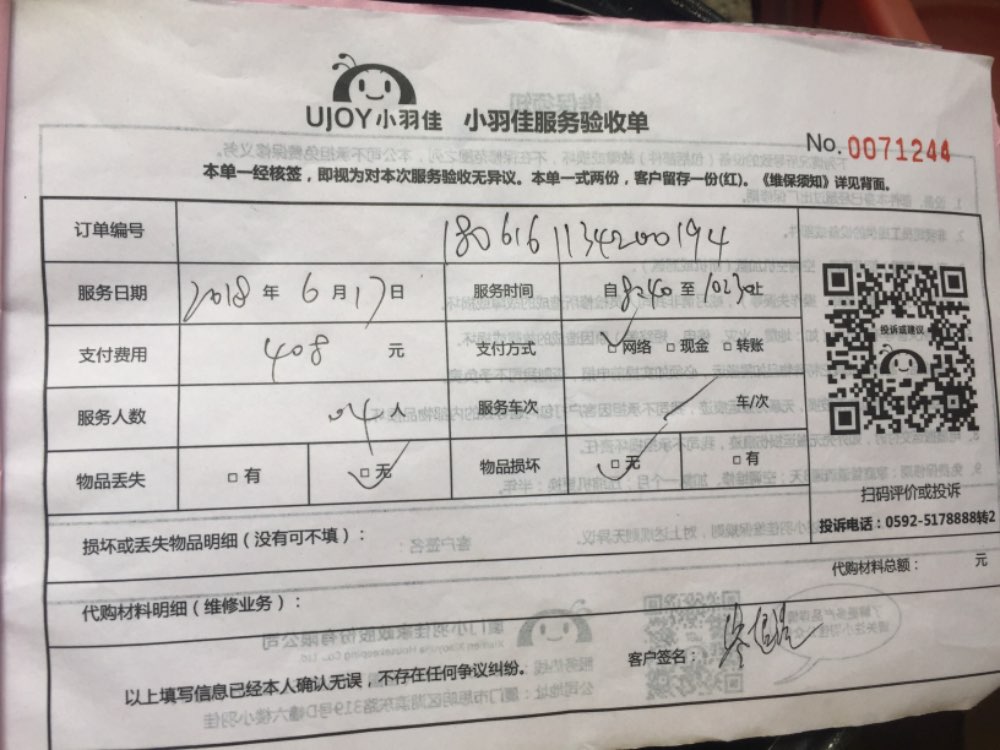 UJOY小羽佳 小羽佳服务验收单
No. 0071244
本单一经核签，即视为对本次服务验收无异议。本单一式两份，客户留存一份(红)。《维保须知》详见背面。
订单编号 1806161134200194
服务日期 2018 年 6 月 17 日 服务时间 自 8:40 至 10:30 止
支付费用 408 元 支付方式 □网络 □现金 □转账
投诉或建议
服务人数 4 人 服务车次 车/次
物品丢失 □有 □无 物品损坏 □无 □有
扫码评价或投诉
投诉电话：0592-5178888转2
损坏或丢失物品明细（没有可不填）：
代购材料总额： 元
代购材料明细（维修业务）：
客户签名：
以上填写信息已经本人确认无误，不存在任何争议纠纷。